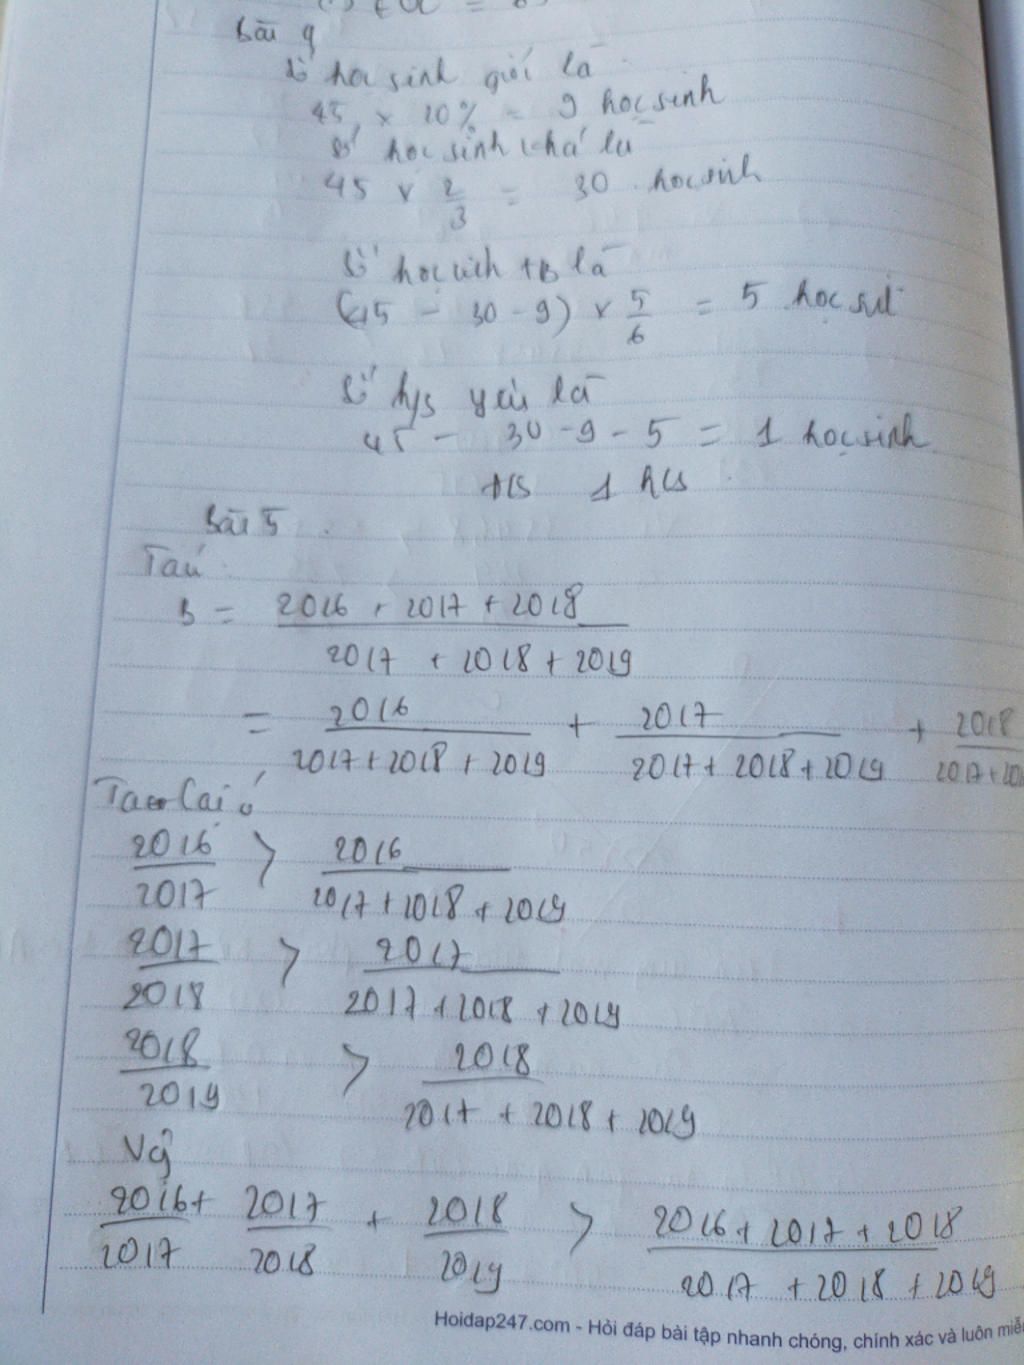 Bài 4
Số học sinh giỏi là
45 × 20% = 9 học sinh
Số học sinh khá là
45 × 2/3 = 30 học sinh
Số học sinh TB là
(45 - 30 - 9) × 5/6 = 5 học sinh
Số h/s yếu là
45 - 30 - 9 - 5 = 1 học sinh
1 hs
Bài 5
Ta có
B = (2016 + 2017 + 2018)/(2017 + 2018 + 2019)
= 2016/(2017 + 2018 + 2019) + 2017/(2017 + 2018 + 2019) + 2018/(2017 + 20
Ta lại có
2016/2017 > 2016/(2017 + 2018 + 2019)
2017/2018 > 2017/(2017 + 2018 + 2019)
2018/2019 > 2018/(2017 + 2018 + 2019)
Vậy
2016/2017 + 2017/2018 + 2018/2019 > (2016 + 2017 + 2018)/(2017 + 2018 + 2019)
Hoidap247.com - Hỏi đáp bài tập nhanh chóng, chính xác và luôn miễ